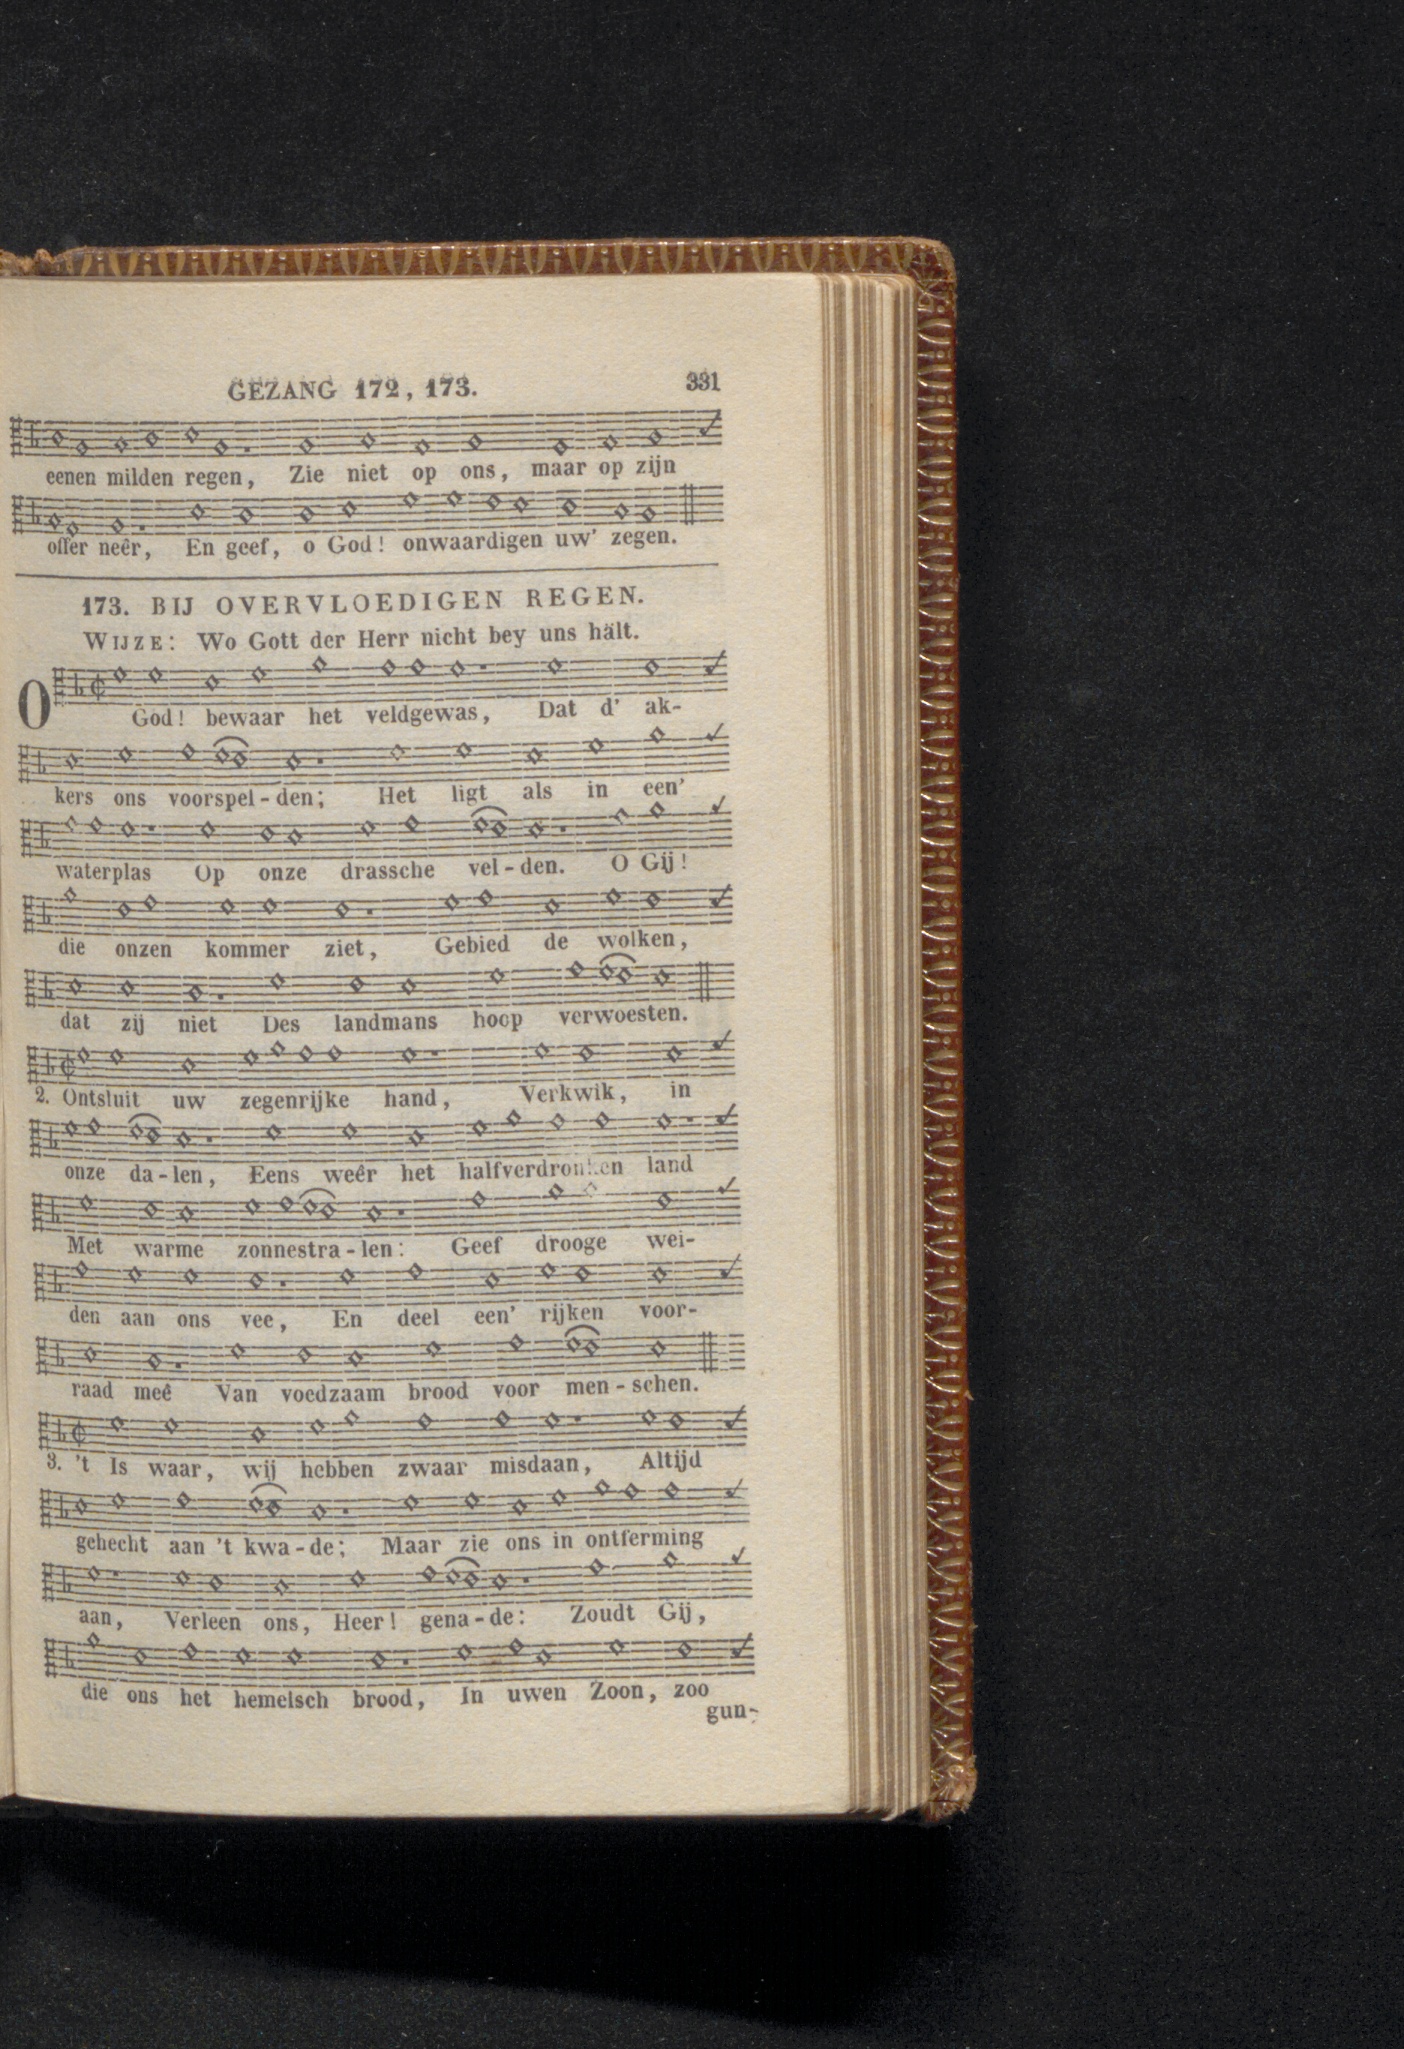 GEZANG 172, 173. 331
eenen milden regen, Zie niet op ons, maar op zijn
offer neêr, En geef, o God! onwaardigen uw' zegen.
173. BIJ OVERVLOEDIGEN REGEN.
WIJZE: Wo Gott der Herr nicht bey uns hält.
O God! bewaar het veldgewas, Dat d' ak-
kers ons voorspel-den; Het ligt als in een'
waterplas Op onze drassche vel-den. O Gij!
die onzen kommer ziet, Gebied de wolken,
dat zij niet Des landmans hoop verwoesten.
2. Ontsluit uw zegenrijke hand, Verkwik, in
onze da-len, Eens weêr het halfverdronken land
Met warme zonnestra-len: Geef drooge wei-
den aan ons vee, En deel een' rijken voor-
raad meê Van voedzaam brood voor men-schen.
3. 't Is waar, wij hebben zwaar misdaan, Altijd
gehecht aan 't kwa-de; Maar zie ons in ontferming
aan, Verleen ons, Heer! gena-de: Zoudt Gij,
die ons het hemelsch brood, In uwen Zoon, zoo
gun-